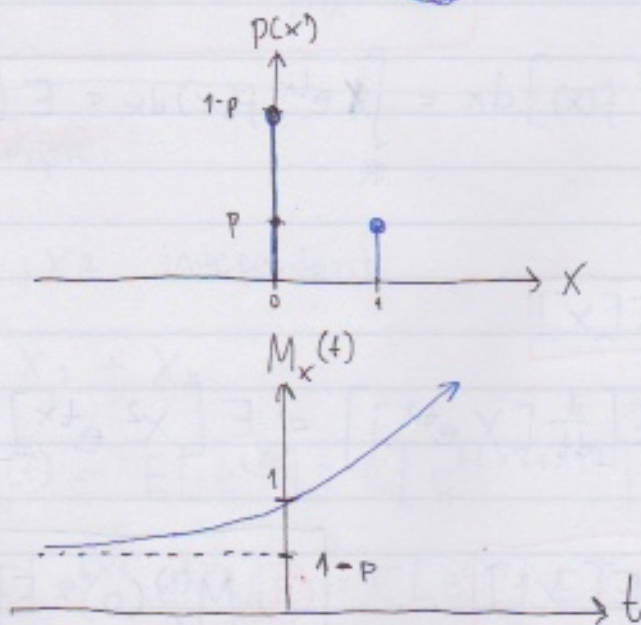 P(x)
1-p
p
0
1
X
M_x(t)
1
1-p
t